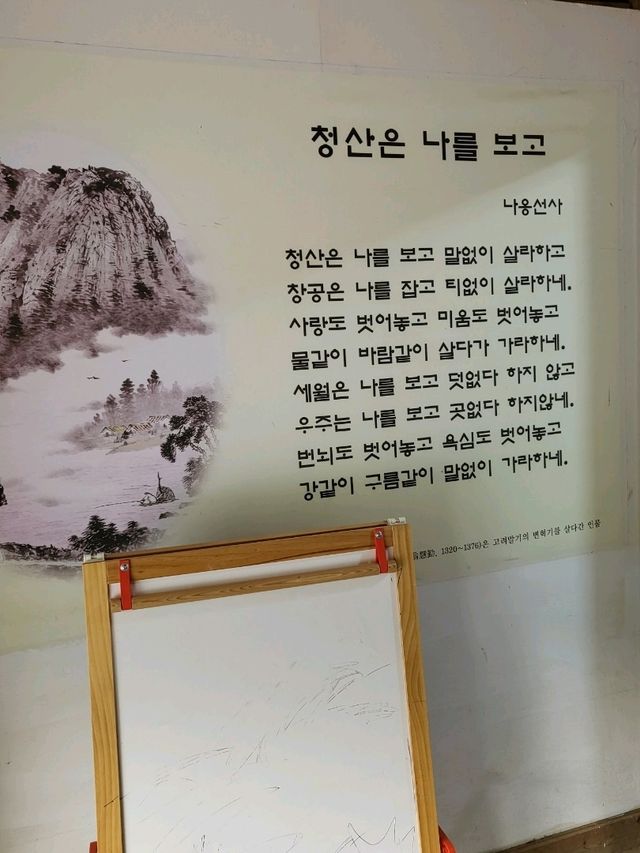 청산은 나를 보고
나옹선사
청산은 나를 보고 말없이 살라하고
창공은 나를 잡고 티없이 살라하네.
사랑도 벗어놓고 미움도 벗어놓고
물같이 바람같이 살다가 가라하네.
세월은 나를 보고 덧없다 하지 않고
우주는 나를 보고 곳없다 하지않네.
번뇌도 벗어놓고 욕심도 벗어놓고
강같이 구름같이 말없이 가라하네.
1320~1376)은 고려말기의 변혁기를 살다간 인물